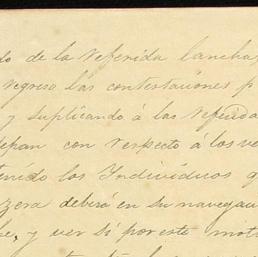 do de la referida lancha,
regreso las contestaciones p
y suplicando á las referida
sepan con respecto á los ve
tenido los Individuos q
zera deberá en su navegac
se, y ver si por este mot